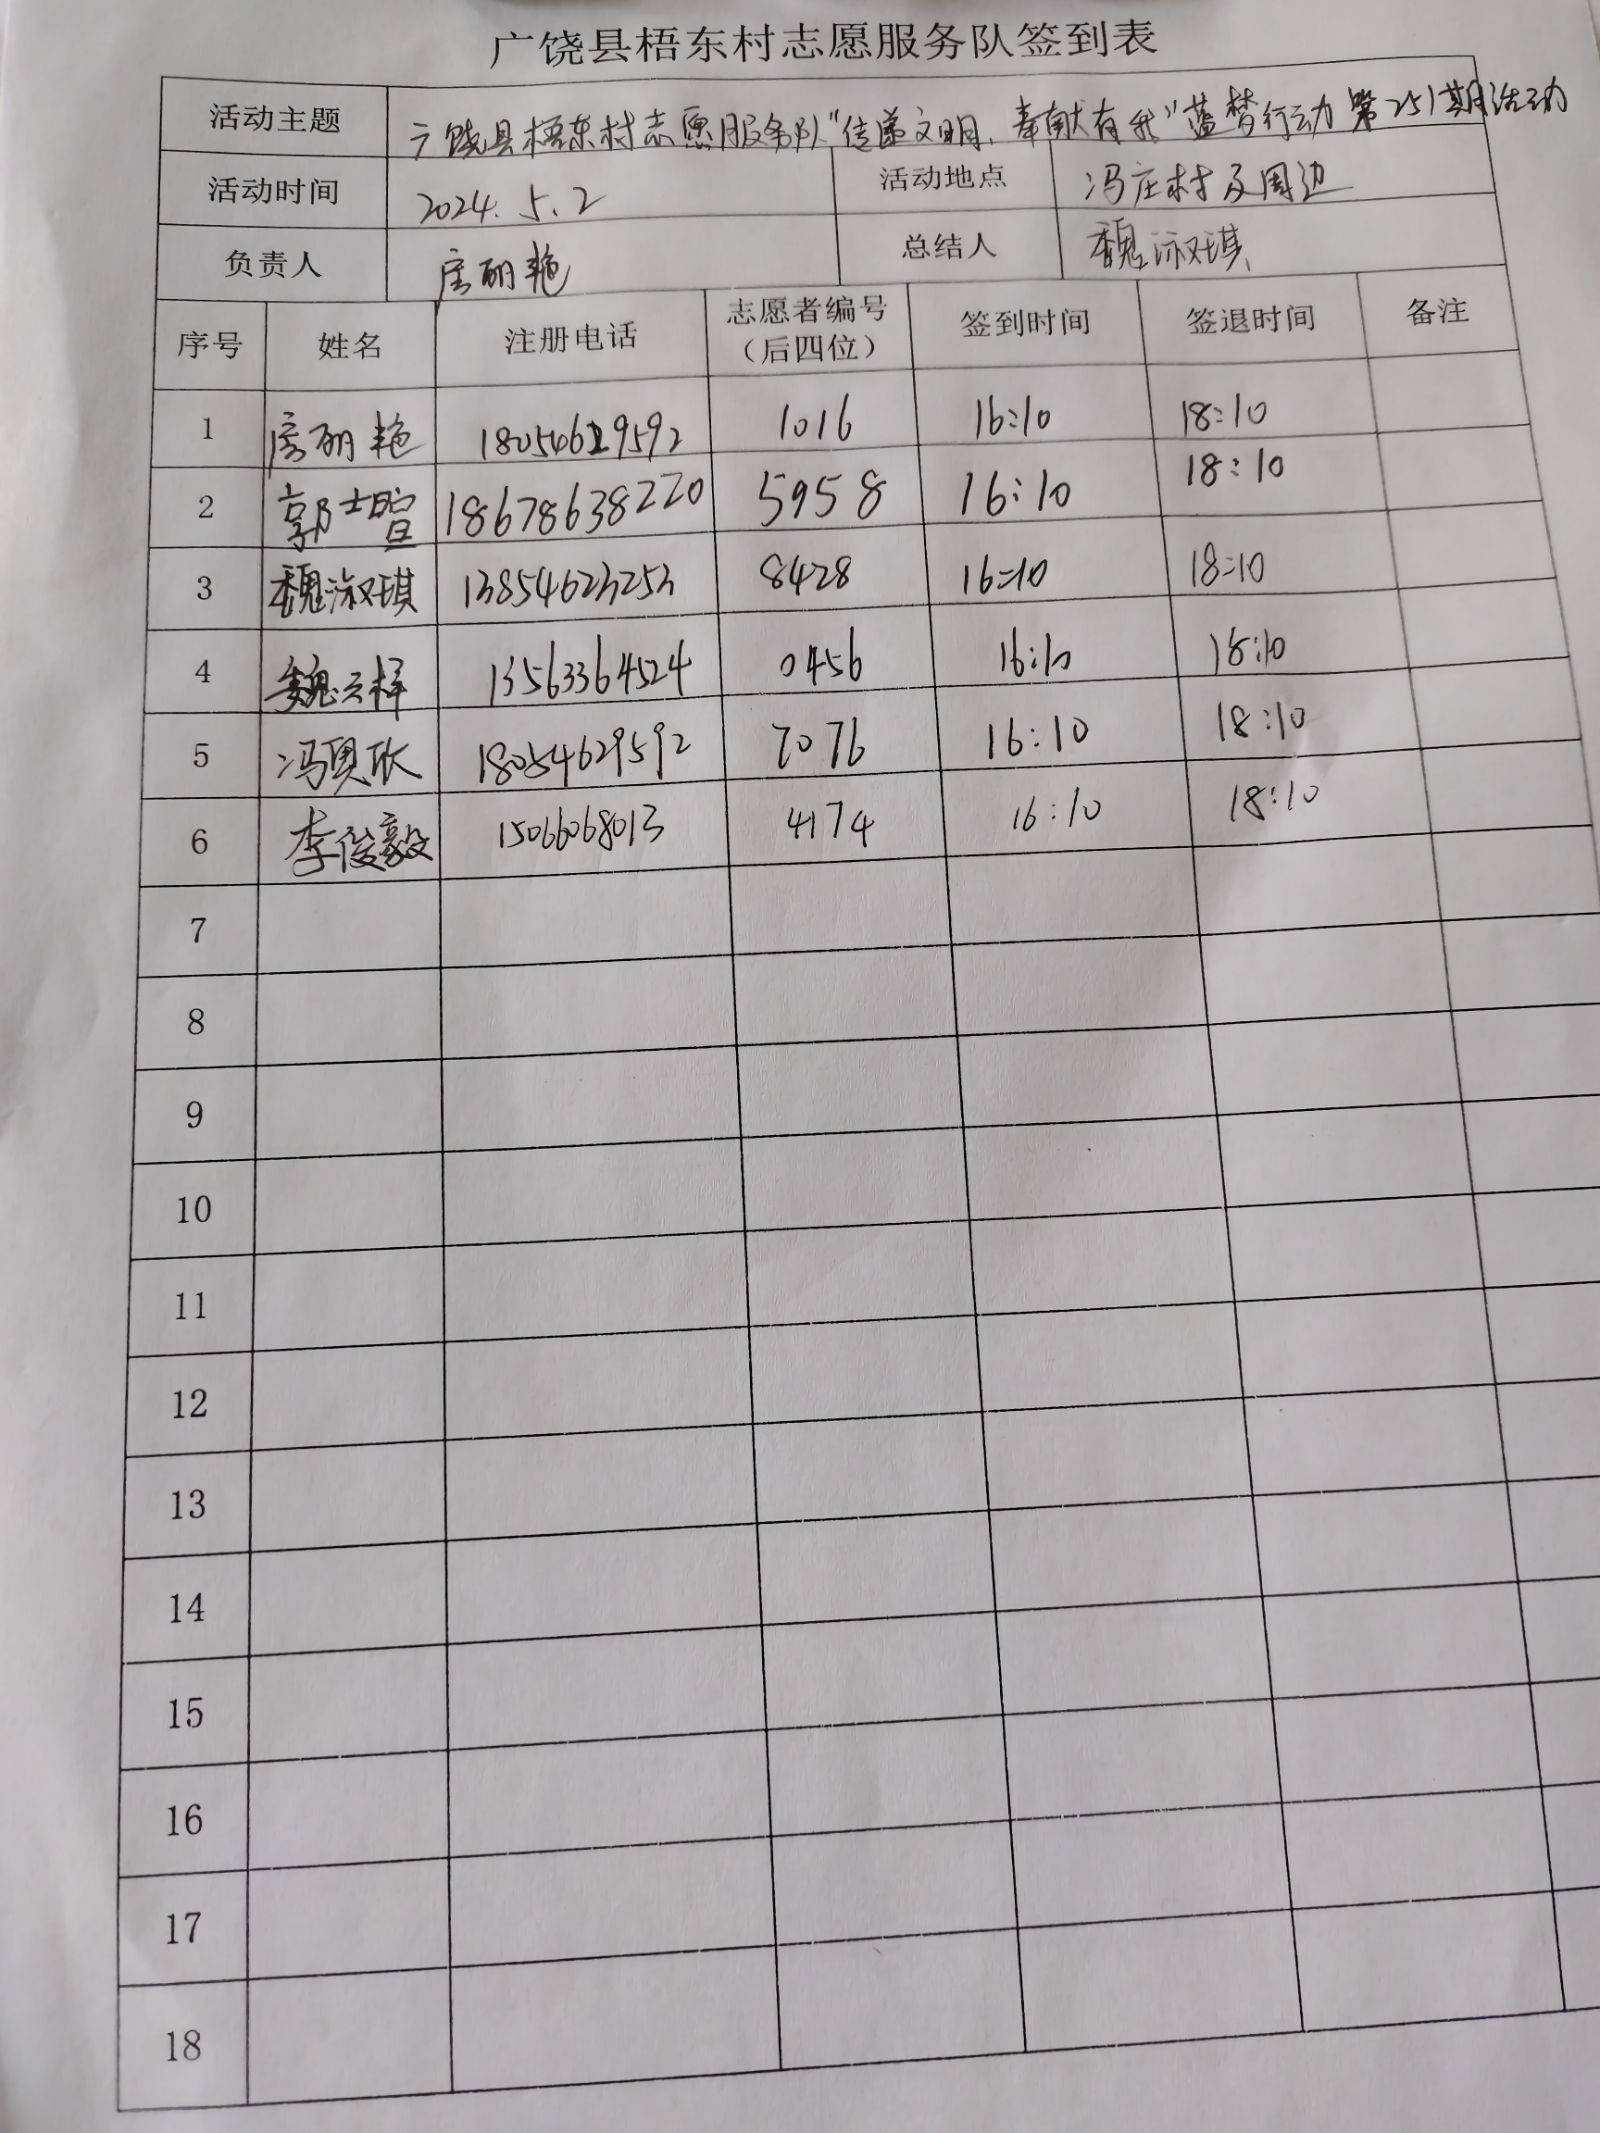 广饶县梧东村志愿服务队签到表
活动主题 广饶县梧东村志愿服务队“传递文明,奉献有我”蓝梦行动第251期活动
活动时间 2024.5.2 活动地点 冯庄村及周边
负责人 房丽艳 总结人 魏淑琪
序号 姓名 注册电话 志愿者编号（后四位） 签到时间 签退时间 备注
1 房丽艳 18054629592 1016 16:10 18:10
2 郭士暄 18678638220 5958 16:10 18:10
3 魏淑琪 13854623253 8428 16:10 18:10
4 魏云祥 13563364524 0456 16:10 18:10
5 冯 18054629592 7076 16:10 18:10
6 李俊毅 15066068013 4174 16:10 18:10
7
8
9
10
11
12
13
14
15
16
17
18